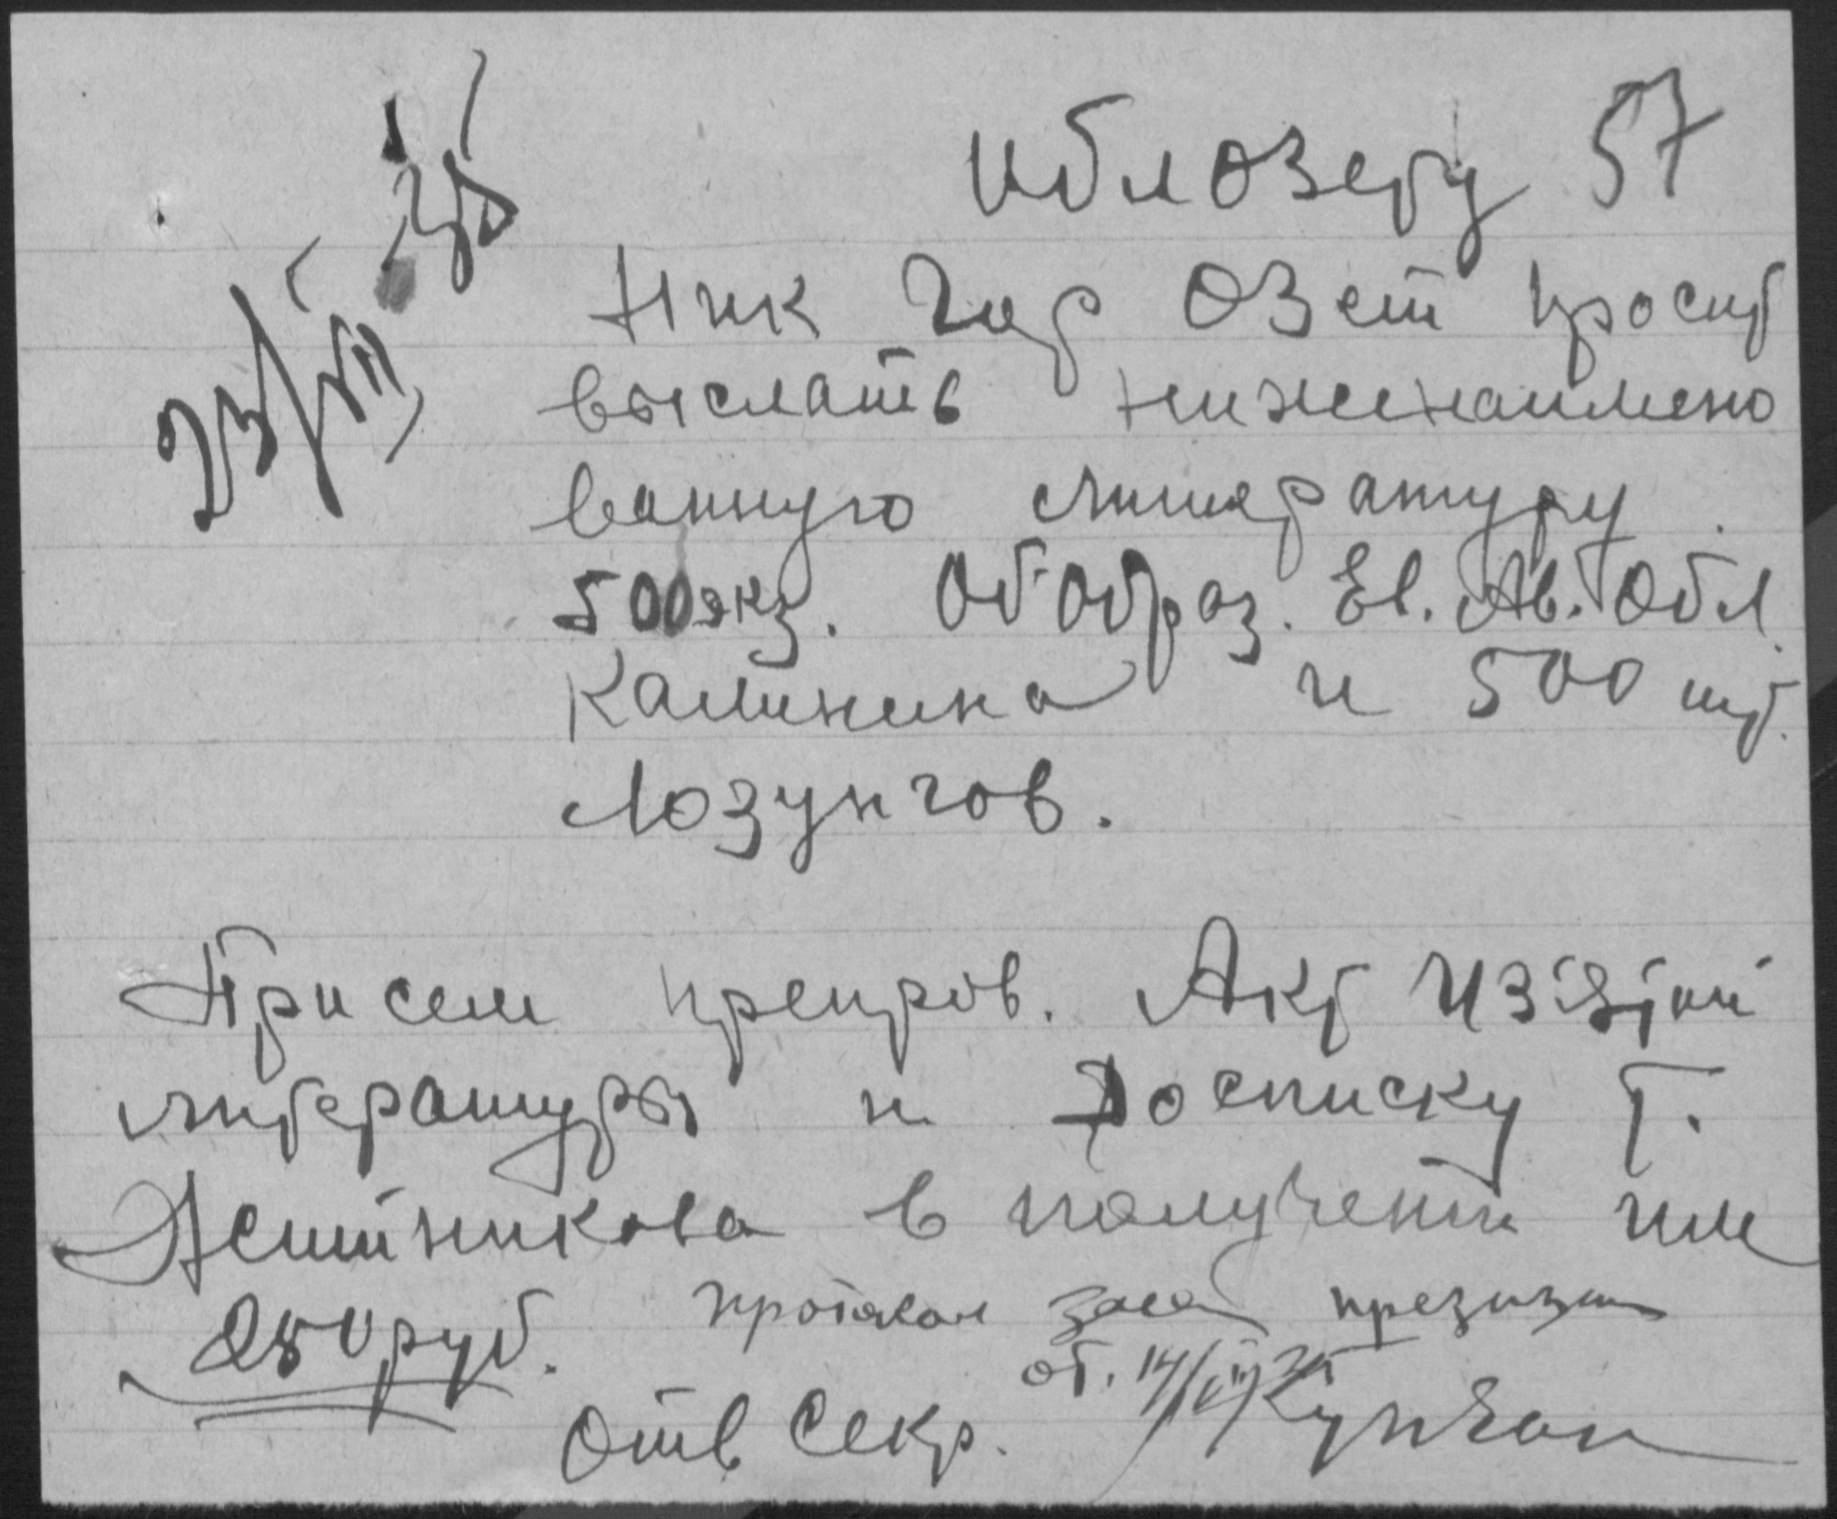 57
Облозету
23/VII 35
Ник Гор ОЗет просит
выслать ниженаимено
ванную литературу
500 экз. Об образ. Ев. Ав. Обл.
Калинина и 500 шт.
Лозунгов.
При сем препров. Акт изъятий
литературы и Росписку т.
в получении им
250 руб. протокол засед президиум
от. 14/VII 35
Отв Секр.